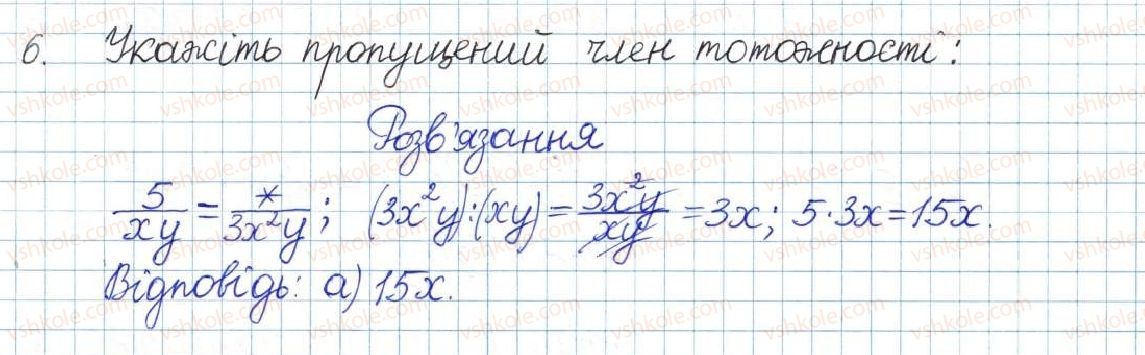 6. Укажіть пропущений член тотожності:
Розв'язання
5/xy = */3x²y; (3x²y):(xy) = 3x²y/xy = 3x; 5·3x=15x.
Відповідь: а) 15x.